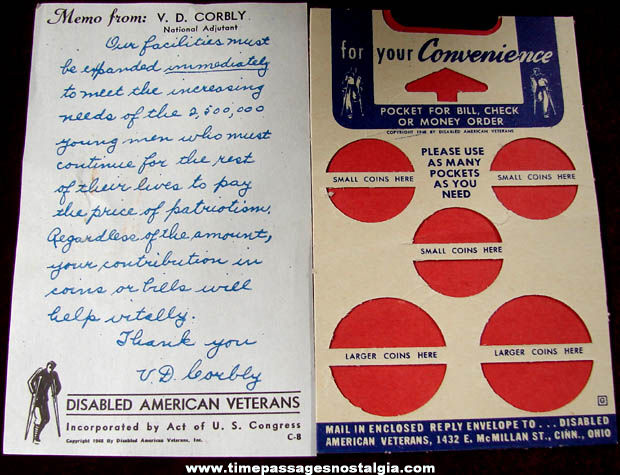 Memo from: V. D. CORBLY
National Adjutant
Our facilities must
be expanded immediately
to meet the increasing
needs of the 2,500,000
young men who must
continue for the rest
of their lives to pay
the price of patriotism.
Regardless of the amount,
your contribution in
coins or bills will
help vitally.
Thank you
V.D. Corbly
DISABLED AMERICAN VETERANS
Incorporated by Act of U. S. Congress
Copyright 1948 By Disabled American Veterans, Inc.
C-8
for your Convenience
POCKET FOR BILL, CHECK
OR MONEY ORDER
COPYRIGHT 1948 BY DISABLED AMERICAN VETERANS
PLEASE USE
AS MANY
POCKETS
AS YOU
NEED
SMALL COINS HERE
SMALL COINS HERE
SMALL COINS HERE
LARGER COINS HERE
LARGER COINS HERE
G
MAIL IN ENCLOSED REPLY ENVELOPE TO... DISABLED
AMERICAN VETERANS, 1432 E. McMILLAN ST., CINN., OHIO
www.timepassagesnostalgia.com